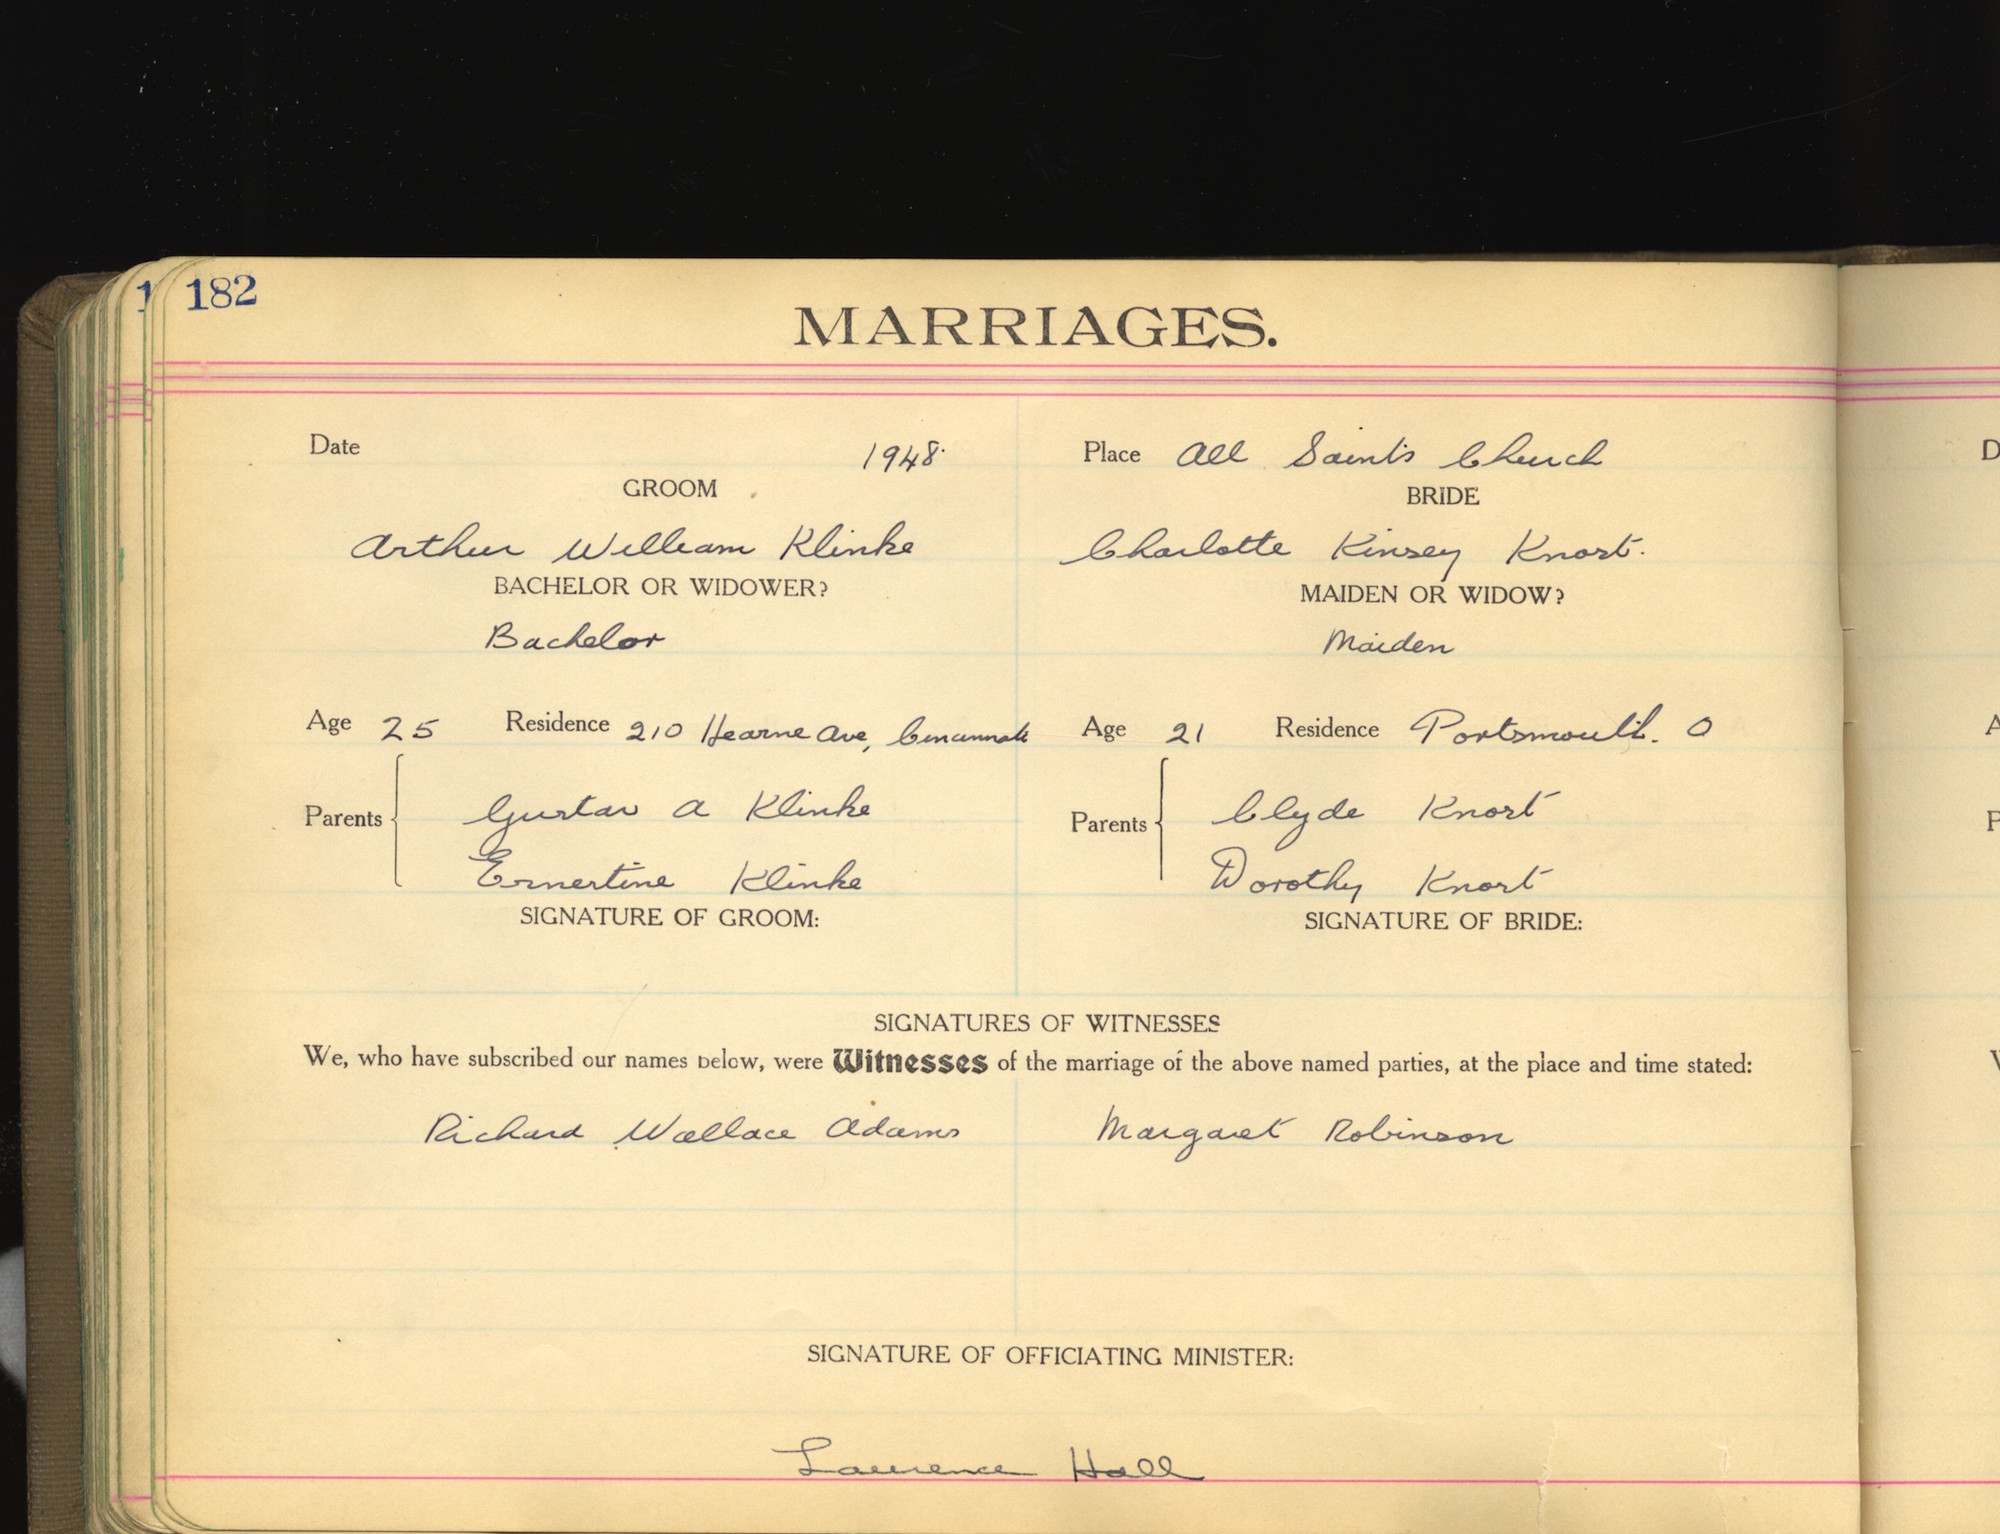 1
182
MARRIAGES.
Date 1948. Place All Saints Church
GROOM BRIDE
Arthur William Klinke Charlotte Kinsey Knost.
BACHELOR OR WIDOWER? MAIDEN OR WIDOW?
Bachelor Maiden
Age 25 Residence 210 Hearne Ave, Cincinnati Age 21 Residence Portsmouth. O
Parents Gustav A Klinke Parents Clyde Knost
Ernestine Klinke Dorothy Knost
SIGNATURE OF GROOM: SIGNATURE OF BRIDE:
SIGNATURES OF WITNESSES
We, who have subscribed our names below, were Witnesses of the marriage of the above named parties, at the place and time stated:
Richard Wallace Adams Margaret Robinson
SIGNATURE OF OFFICIATING MINISTER:
Laurence Hall